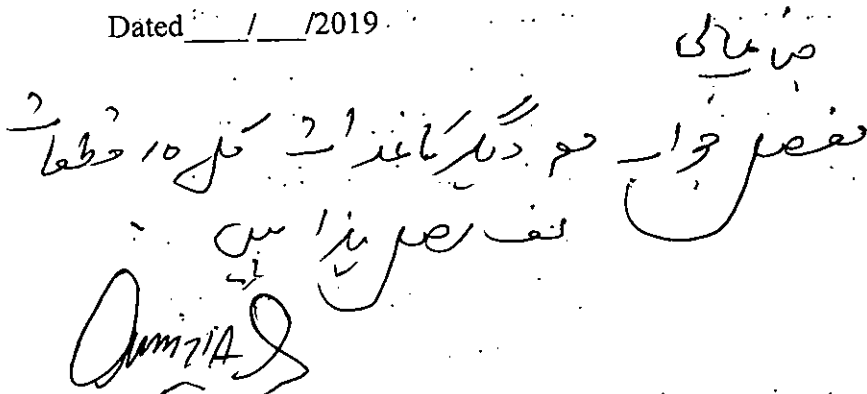 Dated___/___/2019
جناب عالی
مفصل جواب مع دیگر کاغذات کل 10 قطعات
لف ہذا ہیں